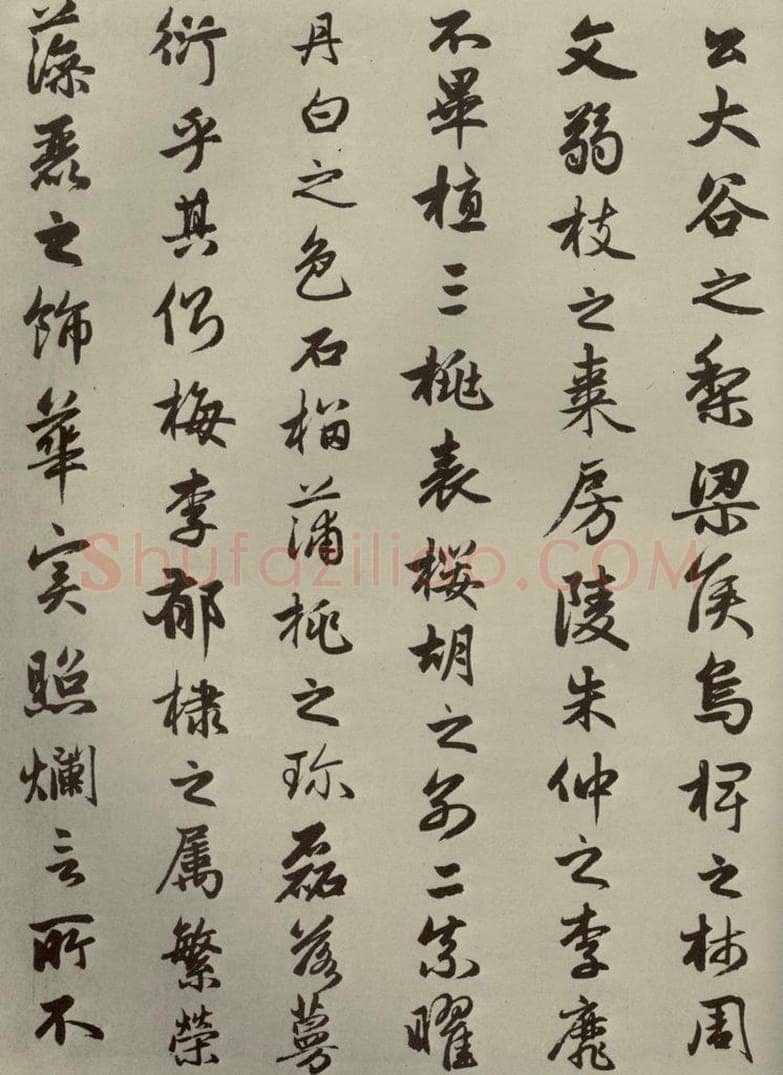 公大谷之梨梁侯烏椑之柿周
文弱枝之棗房陵朱仲之李靡
不畢植三桃表櫻胡之別二柰曜
丹白之色石榴蒲桃之珍磊落蔓
衍乎其側梅李郁棣之属繁榮
藻麗之飾華實照爛言所不
Shufaziliao.COM